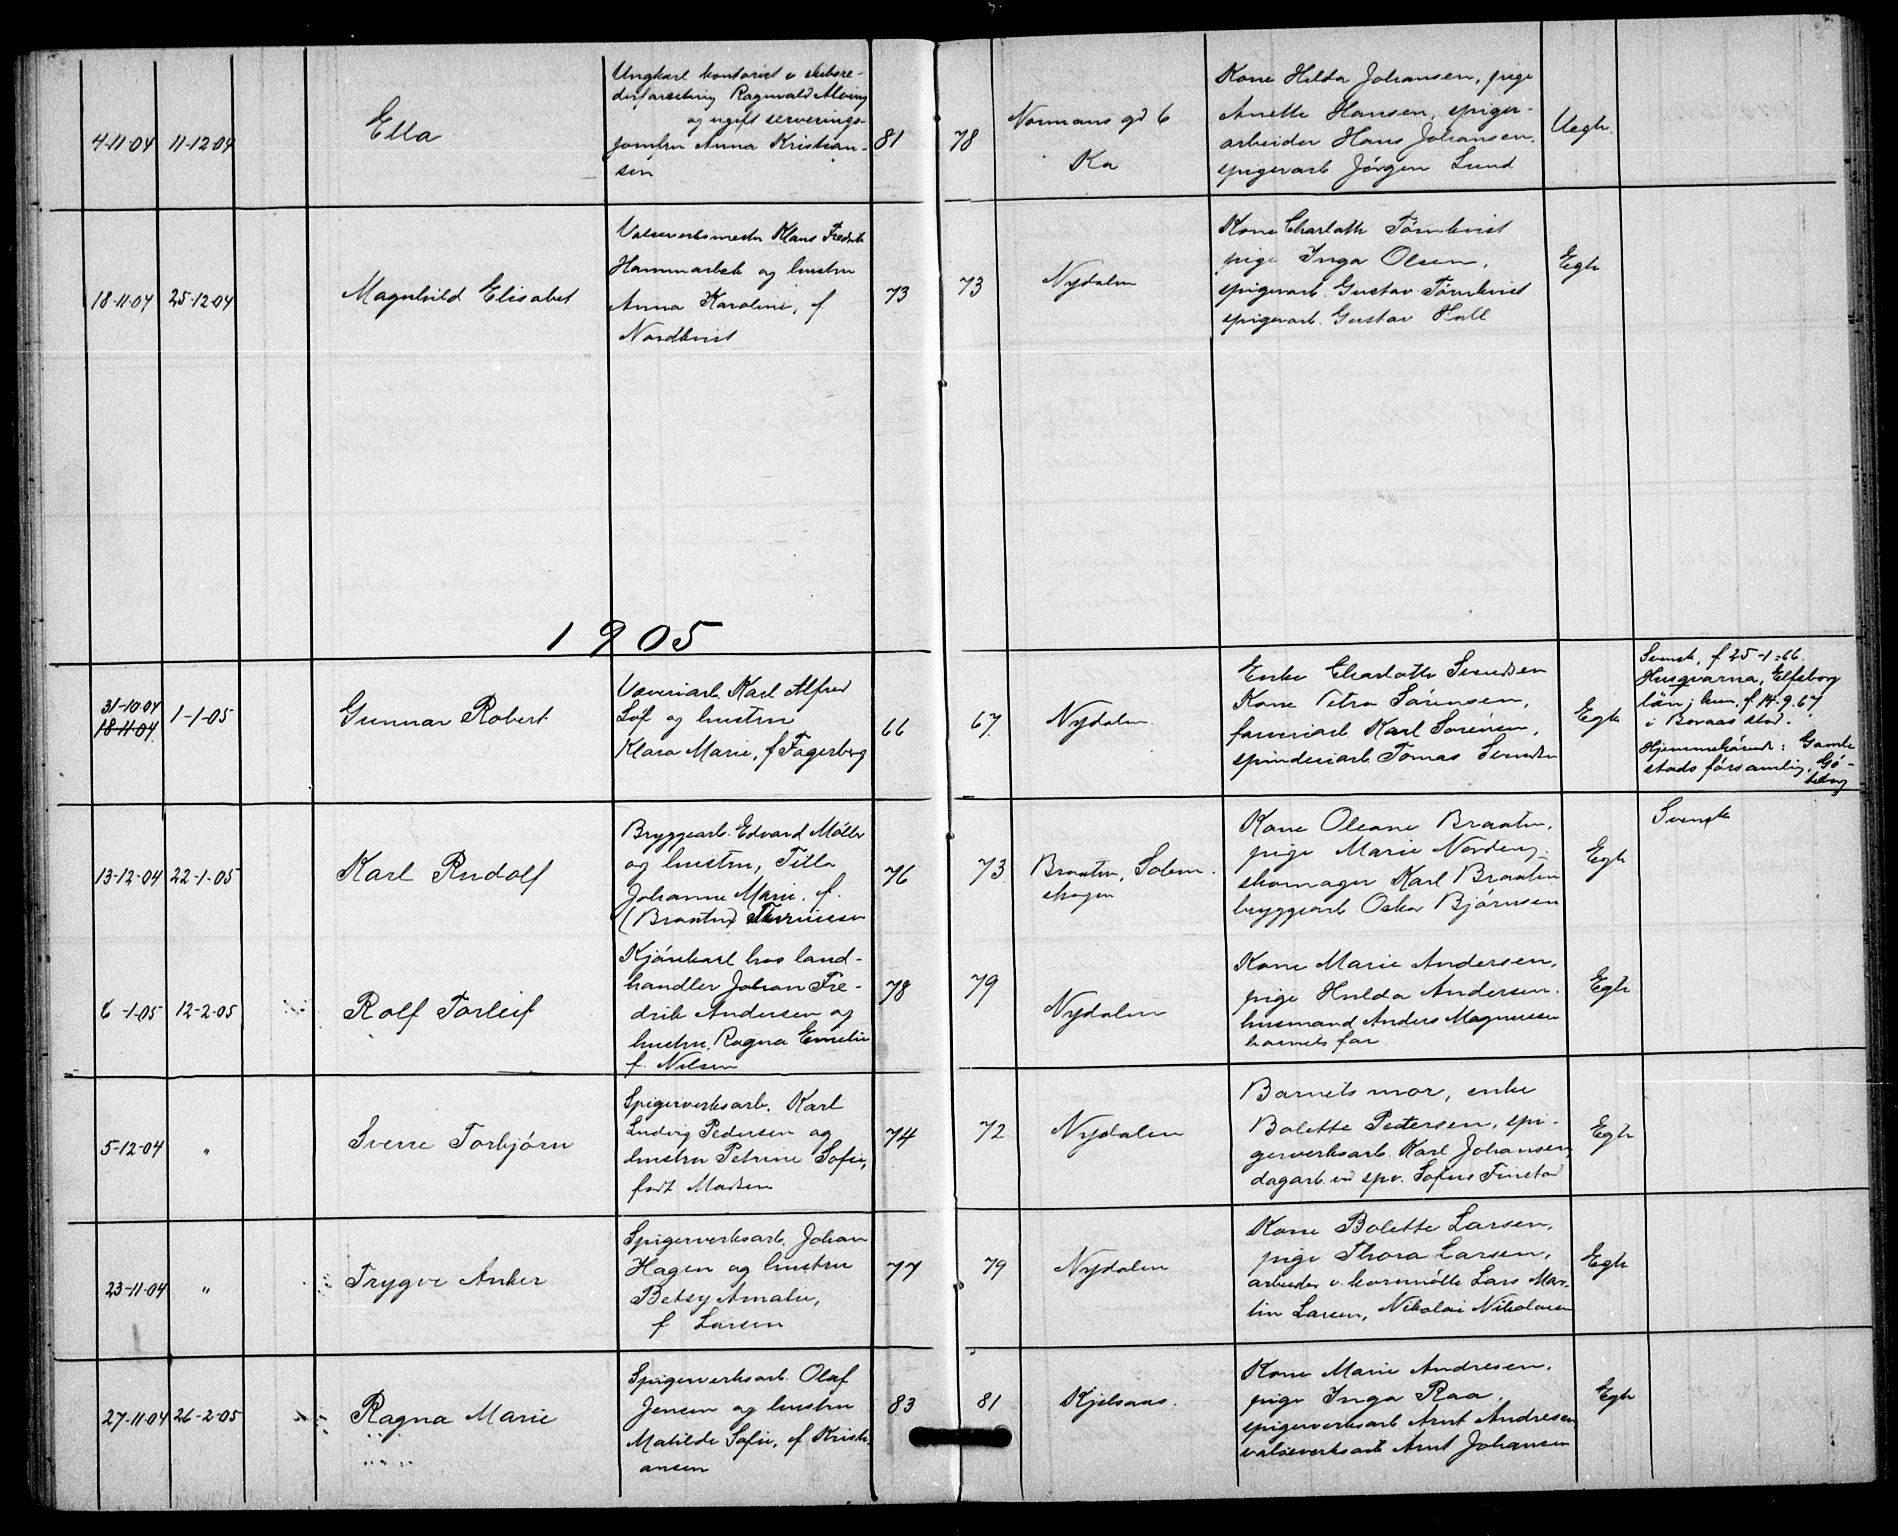 4-11-04 11-12-04
Ella
Ungkarl kontorist v skibsre-
derforretning Ragnvald Alving
og ugift serverings-
jomfru Anna Kristian-
sen
81
78
Normans gd 6
Ka
Kone Hilda Johansen, pige
Anette Hansen, spiger-
arbeider Hans Johansen,
spigerarb Jørgen Lund
Uegte.
18-11-04 25-12-04
Magnhild Elisabet
Valseverksmester Klaus Fredrik
Hammarbek og hustru
Anna Karoline, f.
Nordkvist
73
73
Nydalen
Kone Charlotte Törnkvist
pige Inga Olsen,
spigerarb. Gustav Törnkvist
spigerarb. Gustav Hall
Egte
1905
31-10-04
18-11-04. 1-1-05
Gunnar Robert
Væveriarb. Karl Alfred
Löf og hustru
Klara Marie, f. Fagerberg
66
67
Nydalen.
Enke Charlotte Svendsen
Kone Petra Sørensen,
farveriarb Karl Sørensen,
spinderiarb Tomas Svendsen
Egte
Svensk, f 25-1-66.
Husqvarna, Elfsborg
län; hun, f. 14.9.67
i Boraas stad.
Hjemmehörende: Gamle-
stads församling, Gö-
teborg
13-12-04 22-1-05
Karl Rudolf
Bryggearb. Edvard Møller
og hustru, Tilla
Johanne Marie, f.
(Braaten)
76
73
Braaten, Solem-
skogen
Kone Oleane Braaten,
pige Marie Nordeng-
skomager Karl Braaten
bryggearb Oskar Bjørnsen
Egte
Svensk
6-1-05 12-2-05
Rolf Torleif
Kjørekarl hos land-
handler Johan Fre-
drik Andersen og
hustru, Ragna Emelie
f. Nilsen
78
79
Nydalen
Kone Marie Andersen,
pige Hulda Andersen.
husmand Anders Magnussen
barnets far
Egte
5-12-04 "
Sverre Torbjørn
Spigerverksarb. Karl
Ludvig Pedersen og
hustru Petrine Sofie,
født Madsen
74
72
Nydalen
Barnets mor, enke
Bolette Pedersen, spi-
gerverksarb. Karl Johansen,
dagarb. ved spv. Sofus Finstad
Egte
23-11-04 "
Trygve Anker
Spigerverksarb. Johan
Hagen og hustru
Betzy Amalie,
f Larsen
77
79
Nydalen
Kone Bolette Larsen,
pige Thora Larsen,
arbeider v. kornmølle Lars Mar-
tin Larsen, Nikolai Nikolaisen
Egte
27-11-04 26-2-05
Ragna Marie
Spigerverksarb. Olaf
Jensen og hustru
Matilde Sofie, f Kristi-
ansen
83
81
Kjelsaas.
Kone Marie Andresen,
pige Inga Raa,
spigerverksarb Arnt Andresen,
valseverksarb Arnt Johansen
Egte